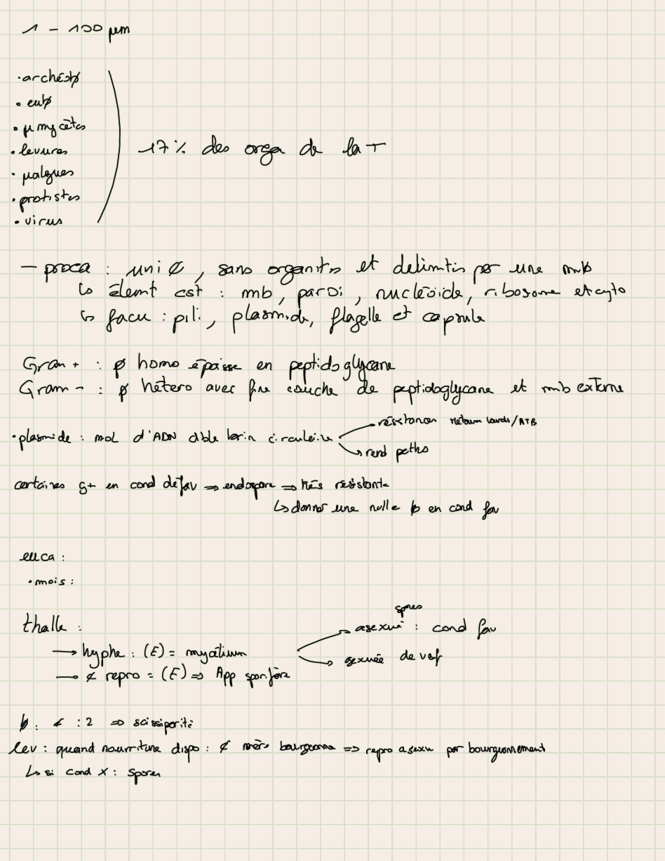 1 - 100 µm
• archéoϕ
• eubϕ
• µmycètes
• levures
• µalgues
• protistes
• virus
17% des orga de la T
— proca : uni ¢, sans organites et délimités par une mb
↳ élemt cst : mb, paroi, nucléoïde, ribosome et cyto
↳ facu : pili, plasmide, flagelle et capsule
Gram + : ϕ homo épaisse en peptidoglycane
Gram - : ϕ hétéro avec fine couche de peptidoglycane et mb externe
• plasmide : mol d'ADN dble brin circulaire
→ résistances métaux lourds/ATB
→ rend patho
certaines g+ en cond défav ⇒ endospore ⇒ très résistante
↳ donner une nvlle b en cond fav
euca :
• mois :
thalle :
→ hyphe : (E) = mycélium
spores
→ asexué : cond fav
→ sexuée défav
→ ¢ repro = (E) ⇒ App sporifère
b : ¢ : 2 ⇒ scissiparité
lev : quand nourriture dispo : ¢ mère bourgeonne ⇒ repro asexu par bourgeonnement
↳ si cond X : spores